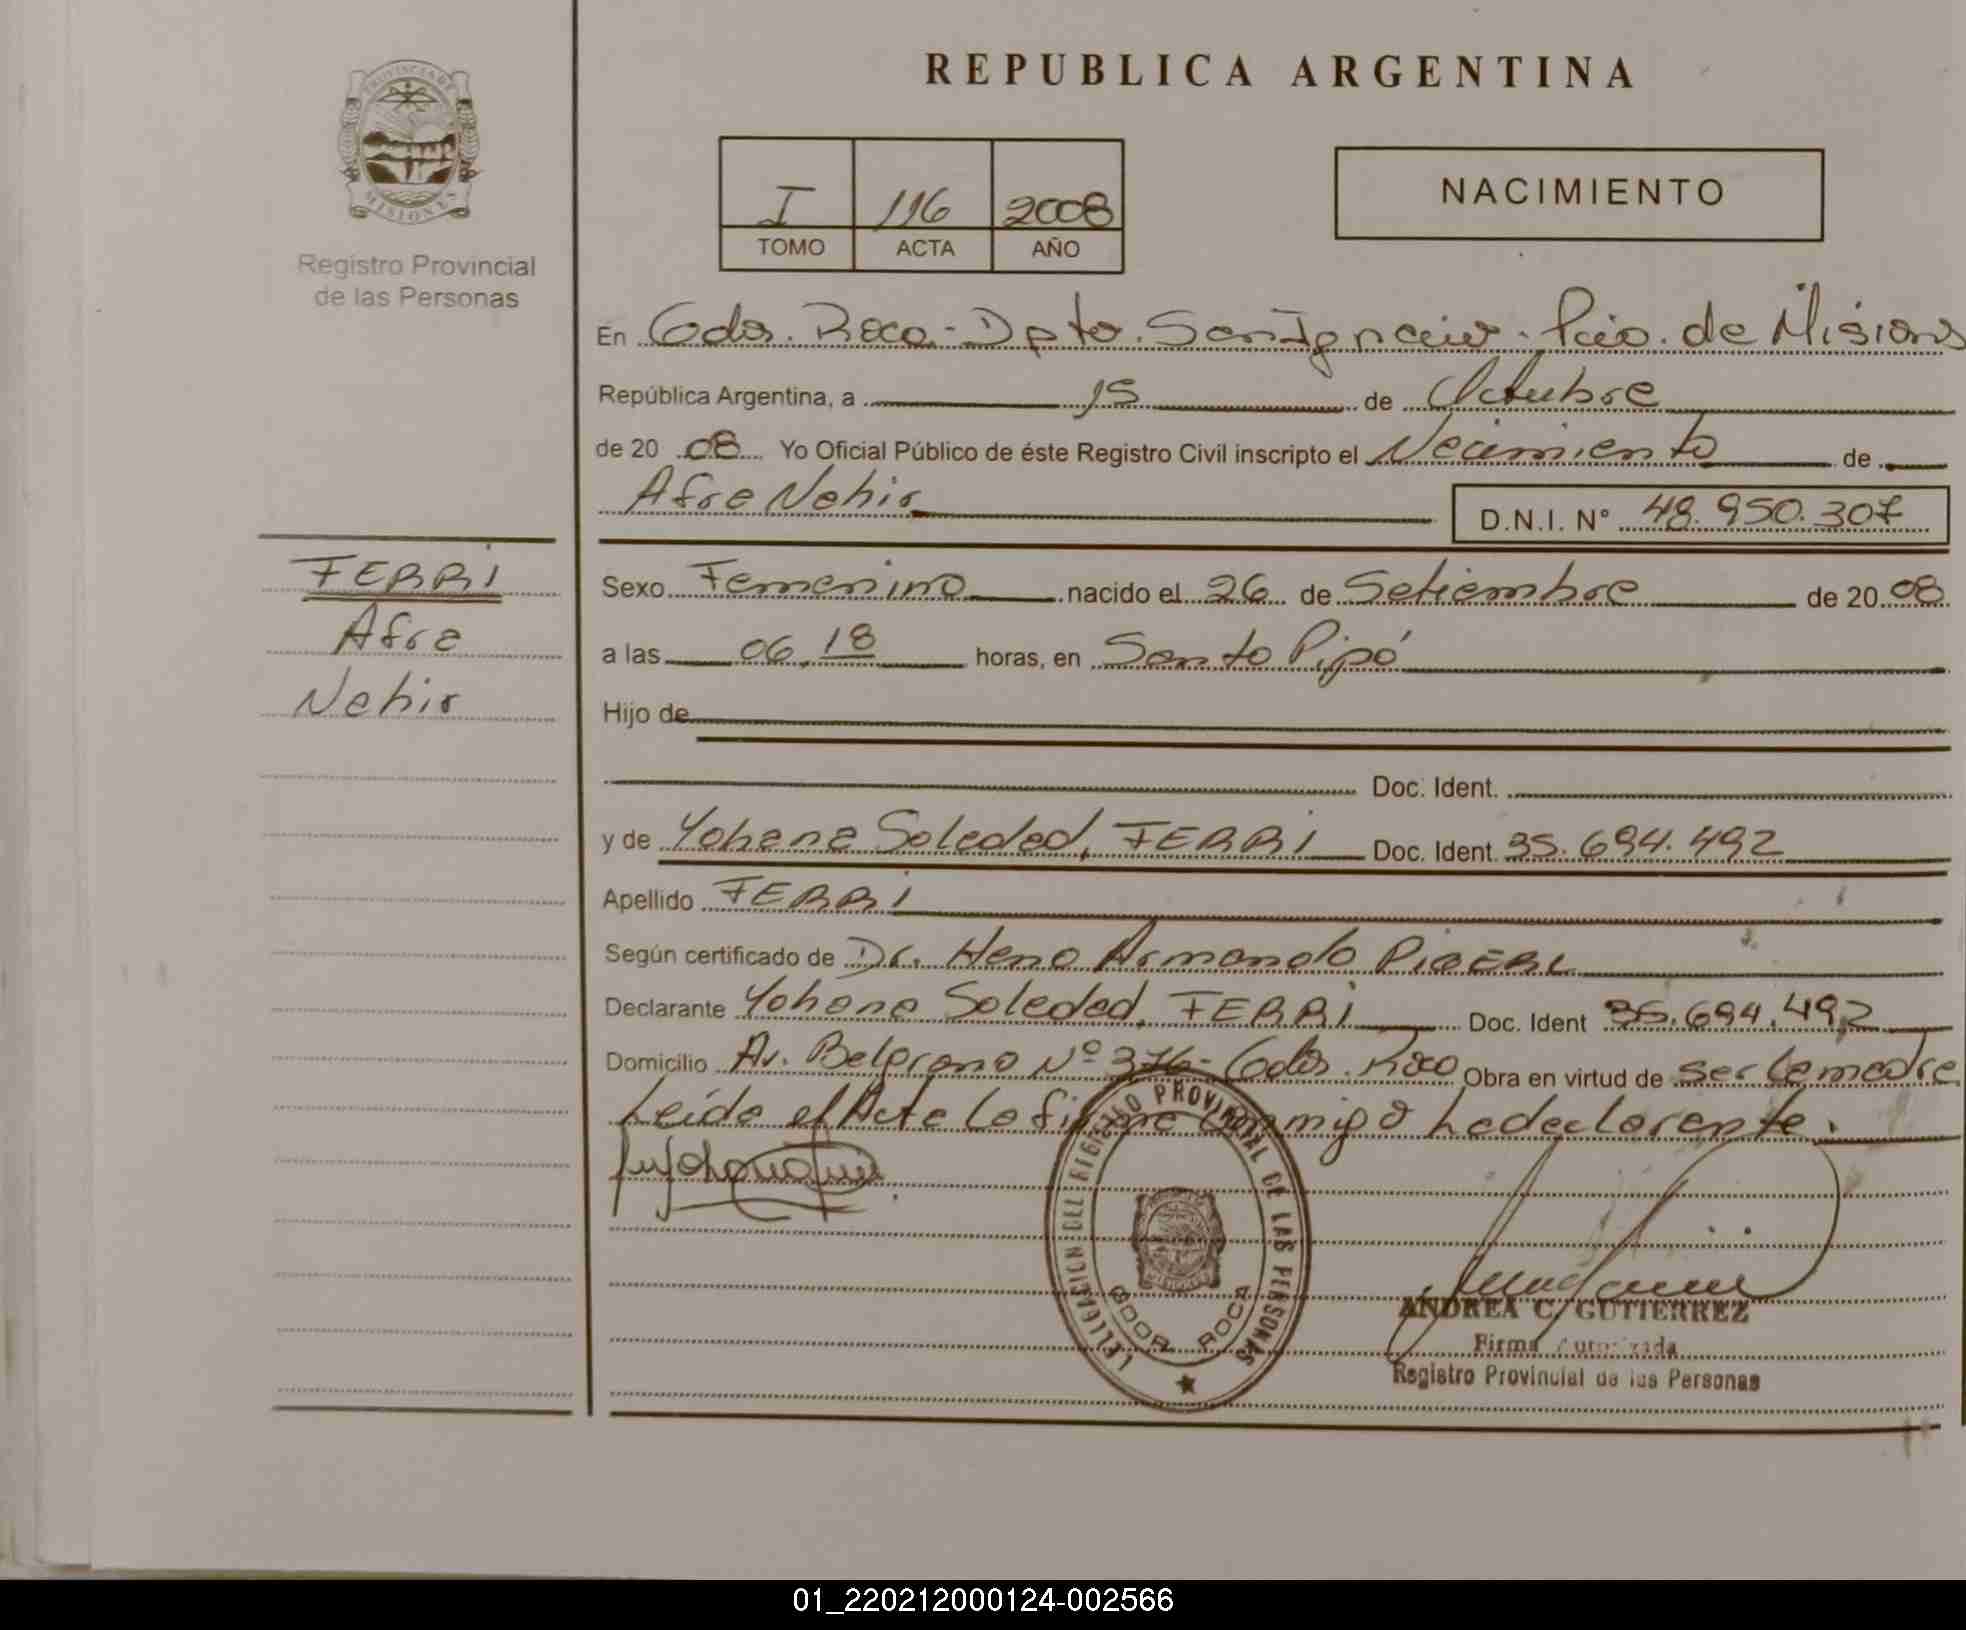 REPUBLICA ARGENTINA
PROVINCIA DE MISIONES
Registro Provincial
de las Personas
I 116 2008
TOMO ACTA AÑO
NACIMIENTO
En Gdor. Roca - Dpto. San Ignacio - Pcia. de Misiones
República Argentina, a 15 de Octubre
de 20 08 Yo Oficial Público de éste Registro Civil inscripto el Nacimiento de
Afra Nehir D.N.I. N° 48.950.307
FERRI
Afra
Nehir
Sexo Femenino nacido el 26 de Setiembre de 20 08
a las 06,18 horas, en Santo Pipó
Hijo de
Doc. Ident.
y de Yohana Soledad, FERRI Doc. Ident. 35.694.492
Apellido FERRI
Según certificado de Dr. Armando
Declarante Yohana Soledad, FERRI Doc. Ident 35.694.492
Domicilio Av. Belgrano Nº 376 - Gdor. Roca Obra en virtud de ser la madre
Leída el Acta la firma conmigo la declarante.
DELEGACION DEL REGISTRO PROVINCIAL DE LAS PERSONAS
GDOR ROCA
ANDREA C. GUTIERREZ
Firma Autorizada
Registro Provincial de las Personas
01_220212000124-002566